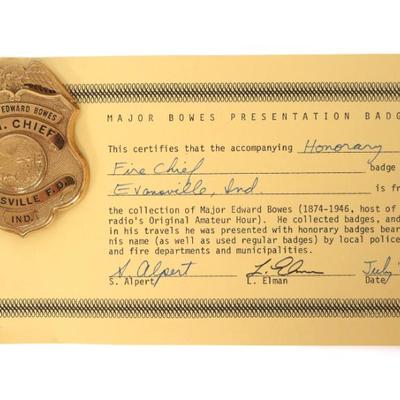 EDWARD BOWES
CHIEF
SVILLE F.D.
IND.
MAJOR BOWES PRESENTATION BADG
This certifies that the accompanying Honorary
Fire Chief badge
Evansville, Ind. is fr
the collection of Major Edward Bowes (1874-1946, host of
radio's Original Amateur Hour). He collected badges, and
in his travels he was presented with honorary badges bear
his name (as well as used regular badges) by local police
and fire departments and municipalities.
S. Alpert L. Elman July
S. Alpert L. Elman Date